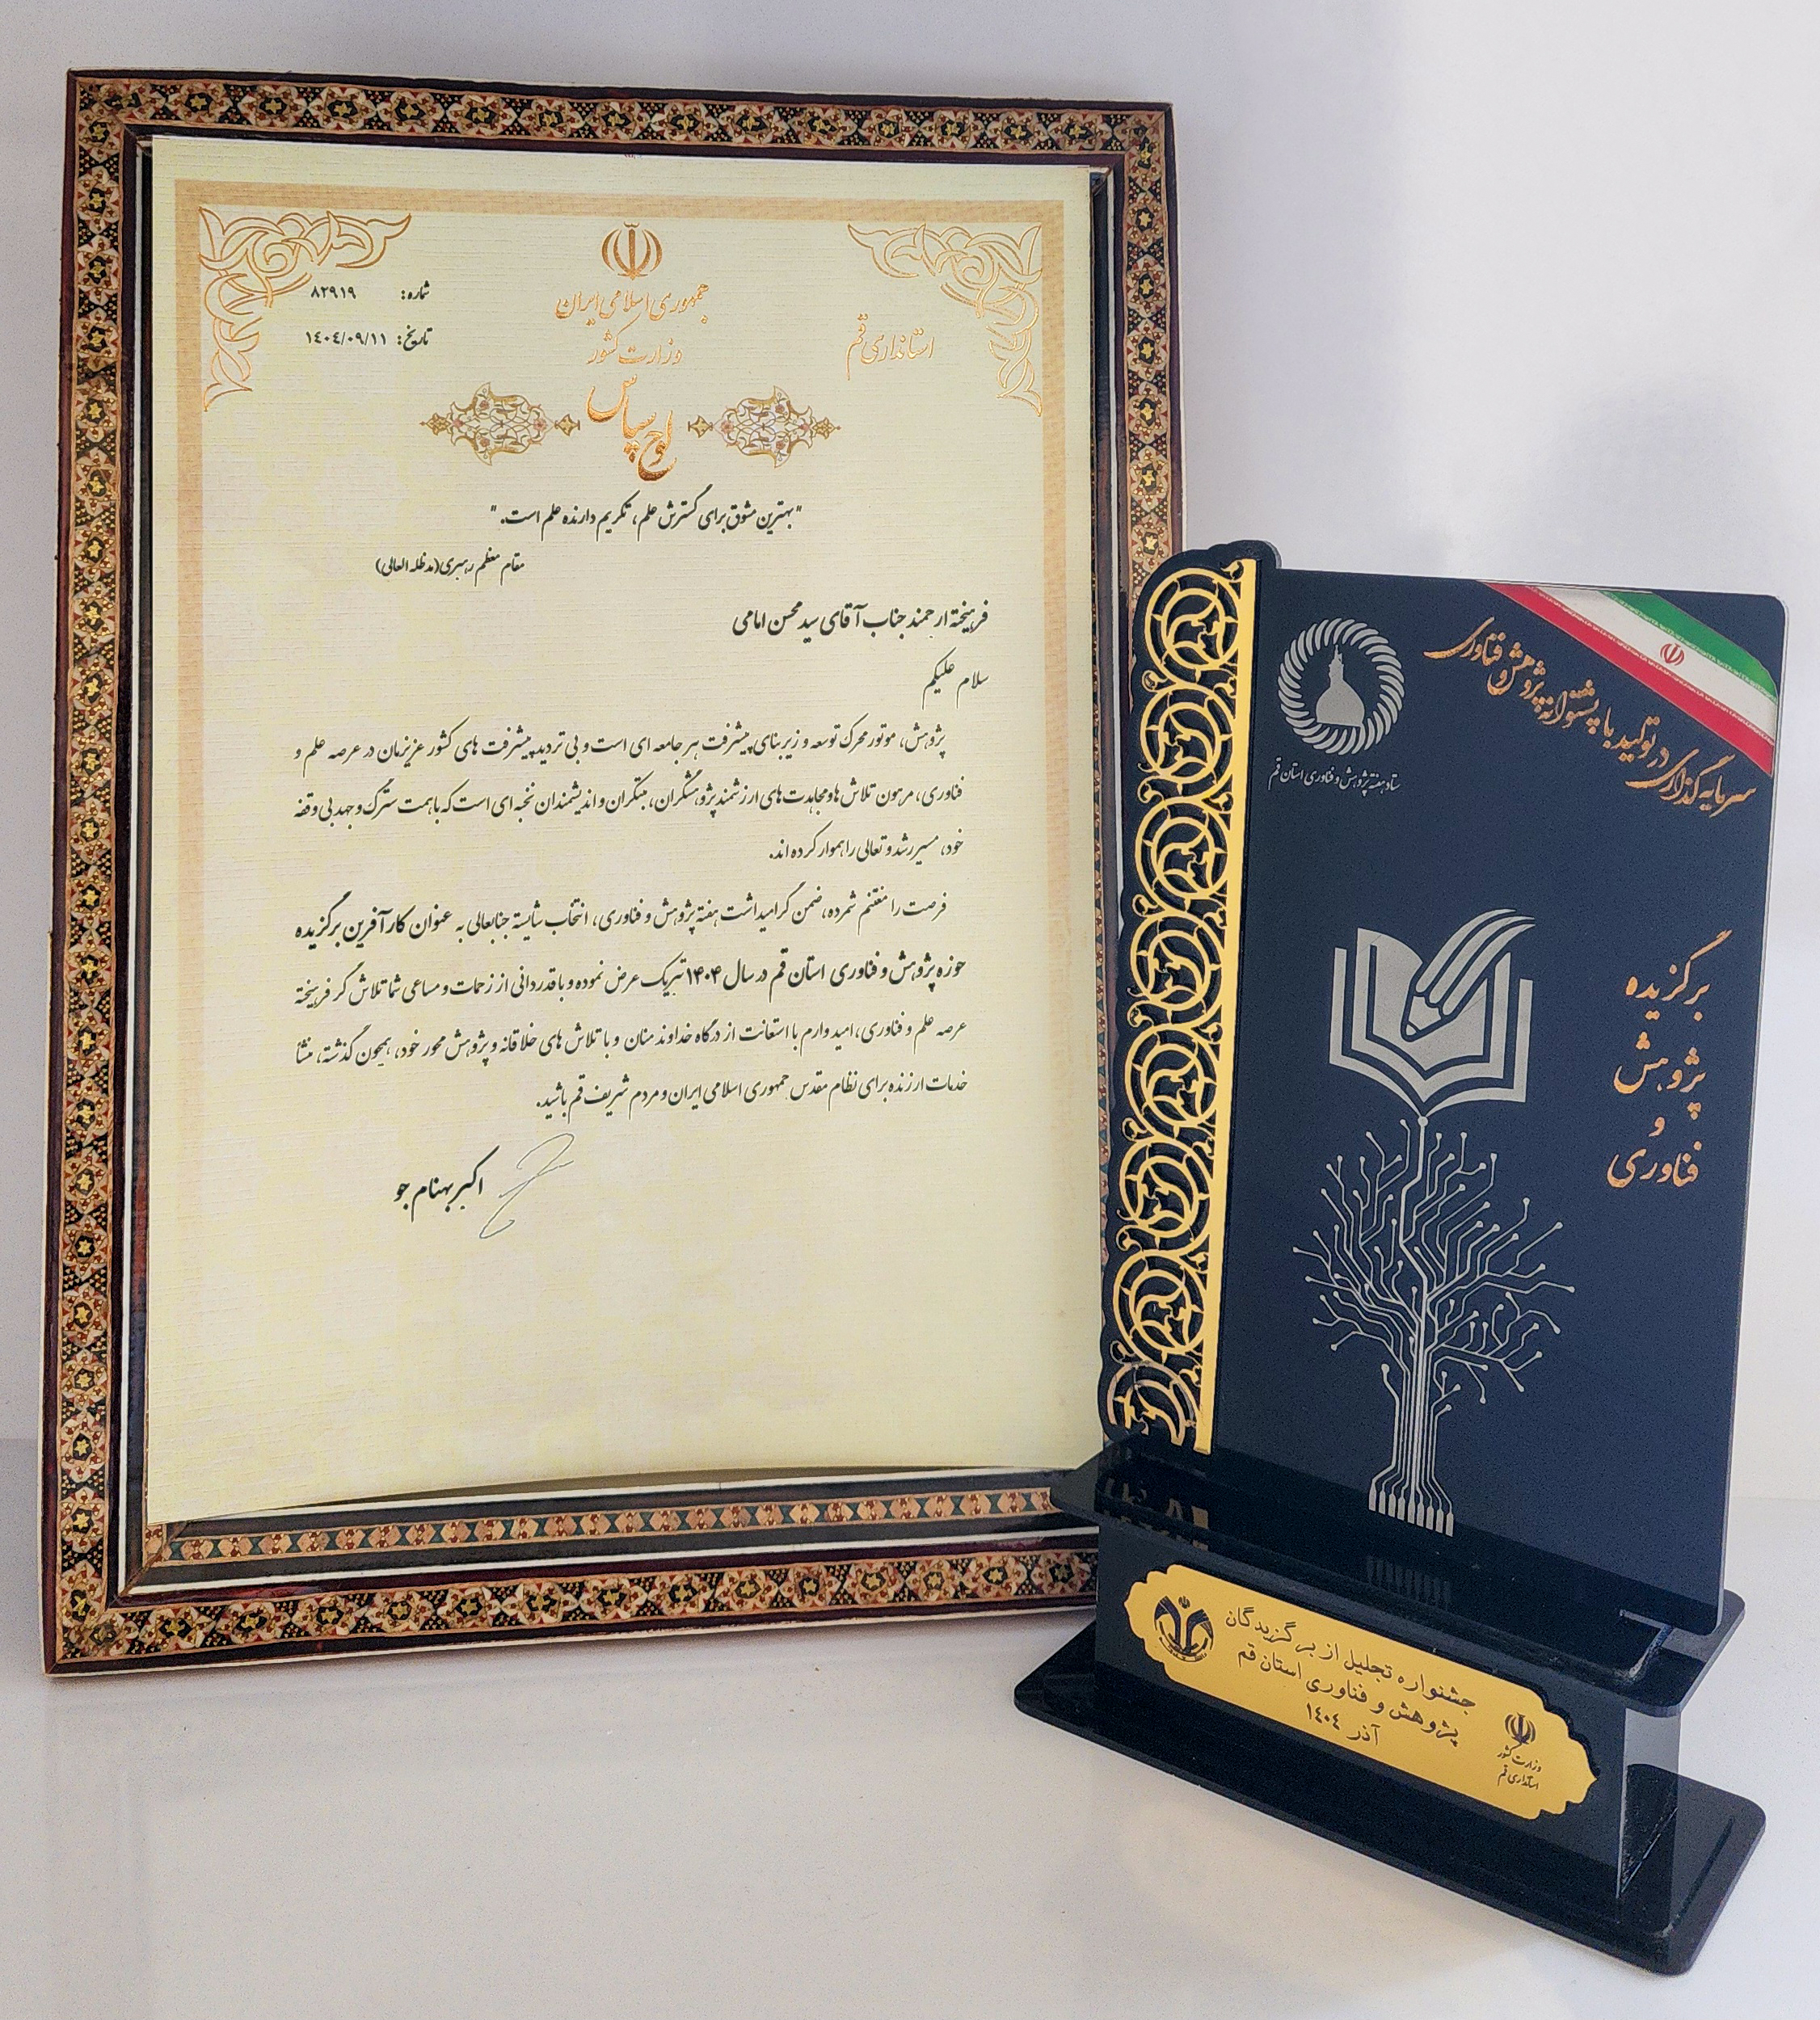 جمهوری اسلامی ایران
وزارت کشور
استانداری قم
شماره: ۸۲۹۱۹
تاریخ: ۱۴۰۴/۰۹/۱۱
لوح سپاس
"بهترین مشوق برای گسترش علم، تکریم دارنده علم است."
مقام معظم رهبری(مدظله العالی)
فرهیخته ارجمند جناب آقای سید محسن امامی
سلام علیکم
پژوهش، موتور محرک توسعه و زیربنای پیشرفت هر جامعه ای است و بی تردید پیشرفت های کشور عزیزمان در عرصه علم و
فناوری، مرهون تلاش ها و مجاهدت های ارزشمند پژوهشگران، مبتکران و اندیشمندان نخبه ای است که با همت سترگ و جهد بی وقفه
خود، مسیر رشد و تعالی را هموار کرده اند.
فرصت را مغتنم شمرده، ضمن گرامیداشت هفته پژوهش و فناوری، انتخاب شایسته جنابعالی به عنوان کارآفرین برگزیده
حوزه پژوهش و فناوری استان قم در سال ۱۴۰۴ تبریک عرض نموده و با قدردانی از زحمات و مساعی شما تلاش گر فرهیخته
عرصه علم و فناوری، امید وارم با استعانت از درگاه خداوند منان و با تلاش های خلاقانه و پژوهش محور خود، همچون گذشته، منشأ
خدمات ارزنده برای نظام مقدس جمهوری اسلامی ایران و مردم شریف قم باشید.
اکبر بهنام جو
سرمایه گذاری در تولید با پشتوانه پژوهش و فناوری
ستاد هفته پژوهش و فناوری استان قم
برگزیده
پژوهش
و
فناوری
جشنواره تجلیل از برگزیدگان
پژوهش و فناوری استان قم
آذر ۱۴۰۴
وزارت کشور
استانداری قم